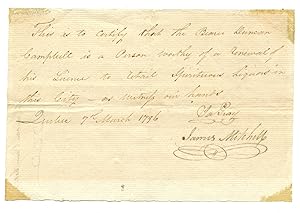 This is to certify that the Bearer Duncan
Campbell is a Person worthy of a renewal of
his Licence to retail Spirituous Liquors in
this City - as witness our hands
Quebec 7th March 1796
James Mitchell